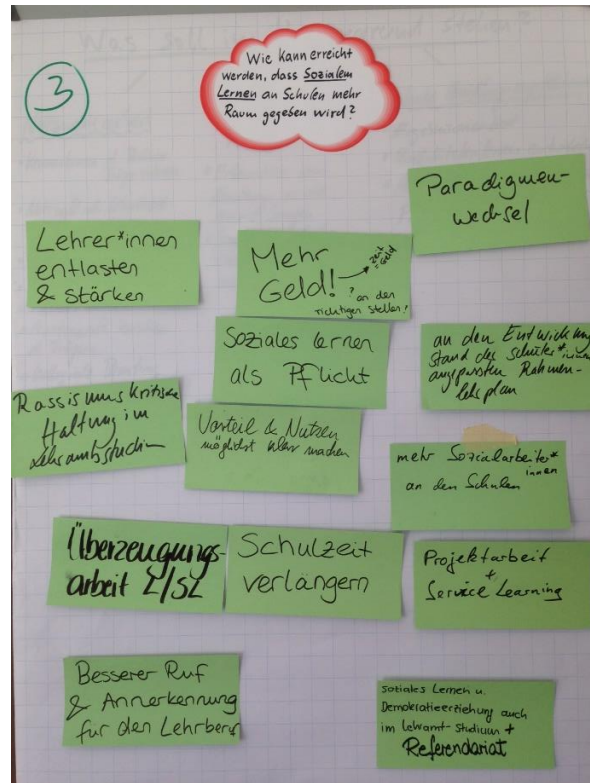 3
Wie kann erreicht
werden, dass Sozialem
Lernen an Schulen mehr
Raum gegeben wird?
Paradigmen-
wechsel
Lehrer*innen
entlasten
& stärken
Mehr
Geld! → Zeit = Geld
? an den
richtigen Stellen!
Soziales lernen
als Pflicht
an den Entwicklung
stand der Schüler*innen
angepassten Rahmen-
lehrplan
Rassismuskritische
Haltung im
Lehramtsstudium
Vorteil & Nutzen
möglichst klar machen
mehr Sozialarbeiter*
innen
an den Schulen
Überzeugungs-
arbeit L/SL
Schulzeit
verlängern
Projektarbeit
+
Service Learning
Besserer Ruf
& Annerkennung
für den Lehrberuf
soziales Lernen u.
Demokratieerziehung auch
im Lehramt-Studium +
Referendariat